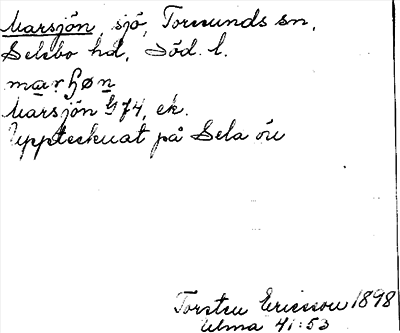 Marsjön, sjö, Toresunds sn,
Selebo hd, Söd. l.
marʃøn
Marsjön GJ4, ek.
Upptecknat på Sela ön
Torsten Ericsson 1898
Ulma 41:53